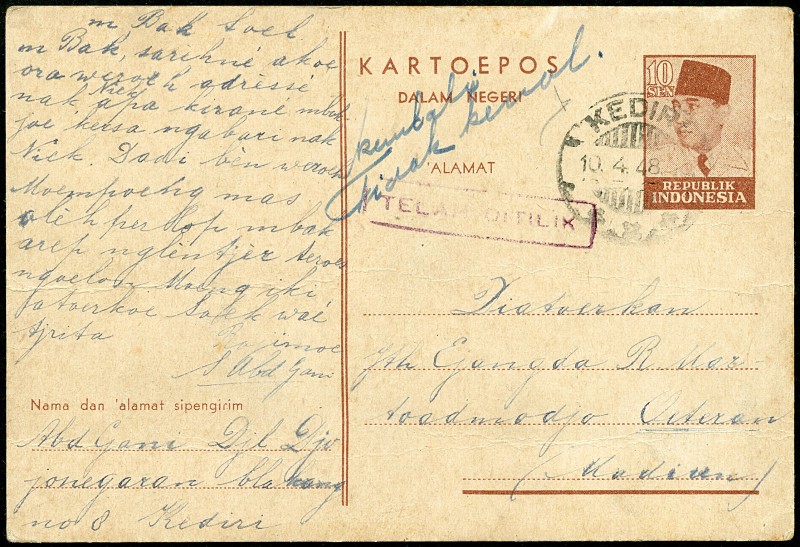 m Bak Soel.
m Bak, sarihné akoe
ora weroeh adressé
Niek
nak apa kirané mbak
joe kersa ngabari nak
Niek. Dadi bèn weroeh
Moempoehg mas
olèh per lop mbak
arep nglèntjèr teroes
ngoeloe Moeng iki
Soek waé
tjrita
S Abd Gani
Nama dan 'alamat sipengirim
Abd Gani Djl Djo
jonegaran blakang
no 8 Kediri
KARTOEPOS
DALAM NEGERI
'ALAMAT
kembali
tidak kenal.
TELAH DITILIK
10 SEN
REPUBLIK
INDONESIA
KEDIRI
10.4.48
Diatoerkan
Jth Gangda R Mar-
toadmodjo Veteran
(Madiun)